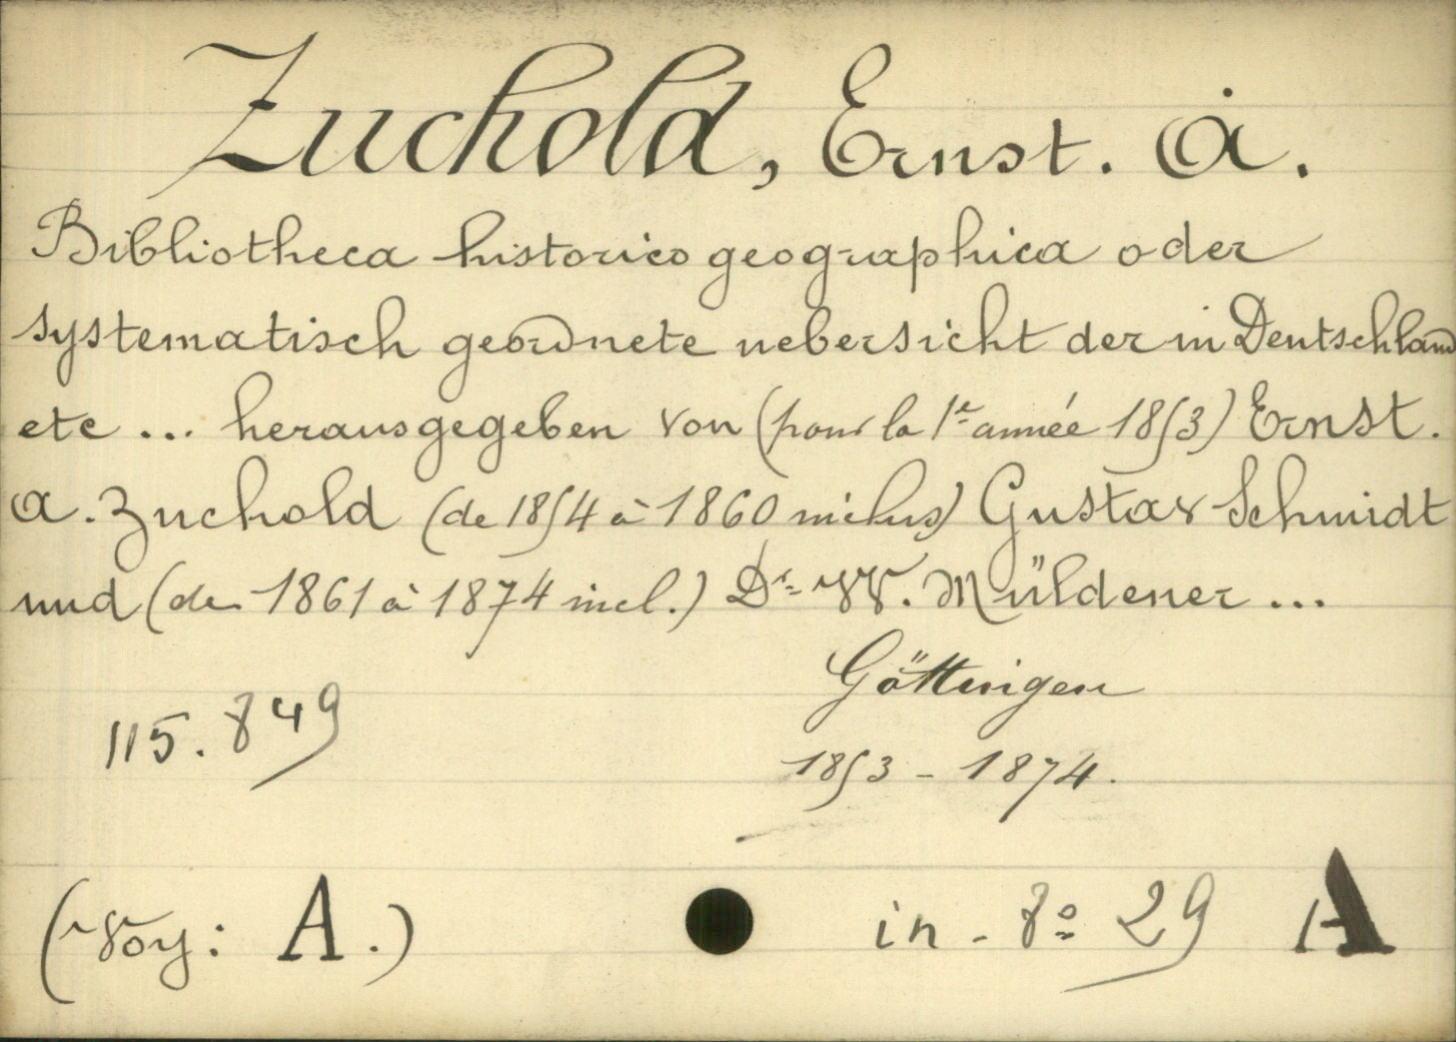 Zuchold, Ernst. A.
Bibliotheca historico geographica oder
systematisch geordnete uebersicht der in Deutschland
etc ... herausgegeben von (pour la 1re année 1853) Ernst.
A. Zuchold (de 1854 à 1860 inclus) Gustav Schmidt
und (de 1861 à 1874 incl.) Dr W. Müldener ...
Göttingen
115.849
1853 - 1874.
(Voy: A.)
in-8o 29 A